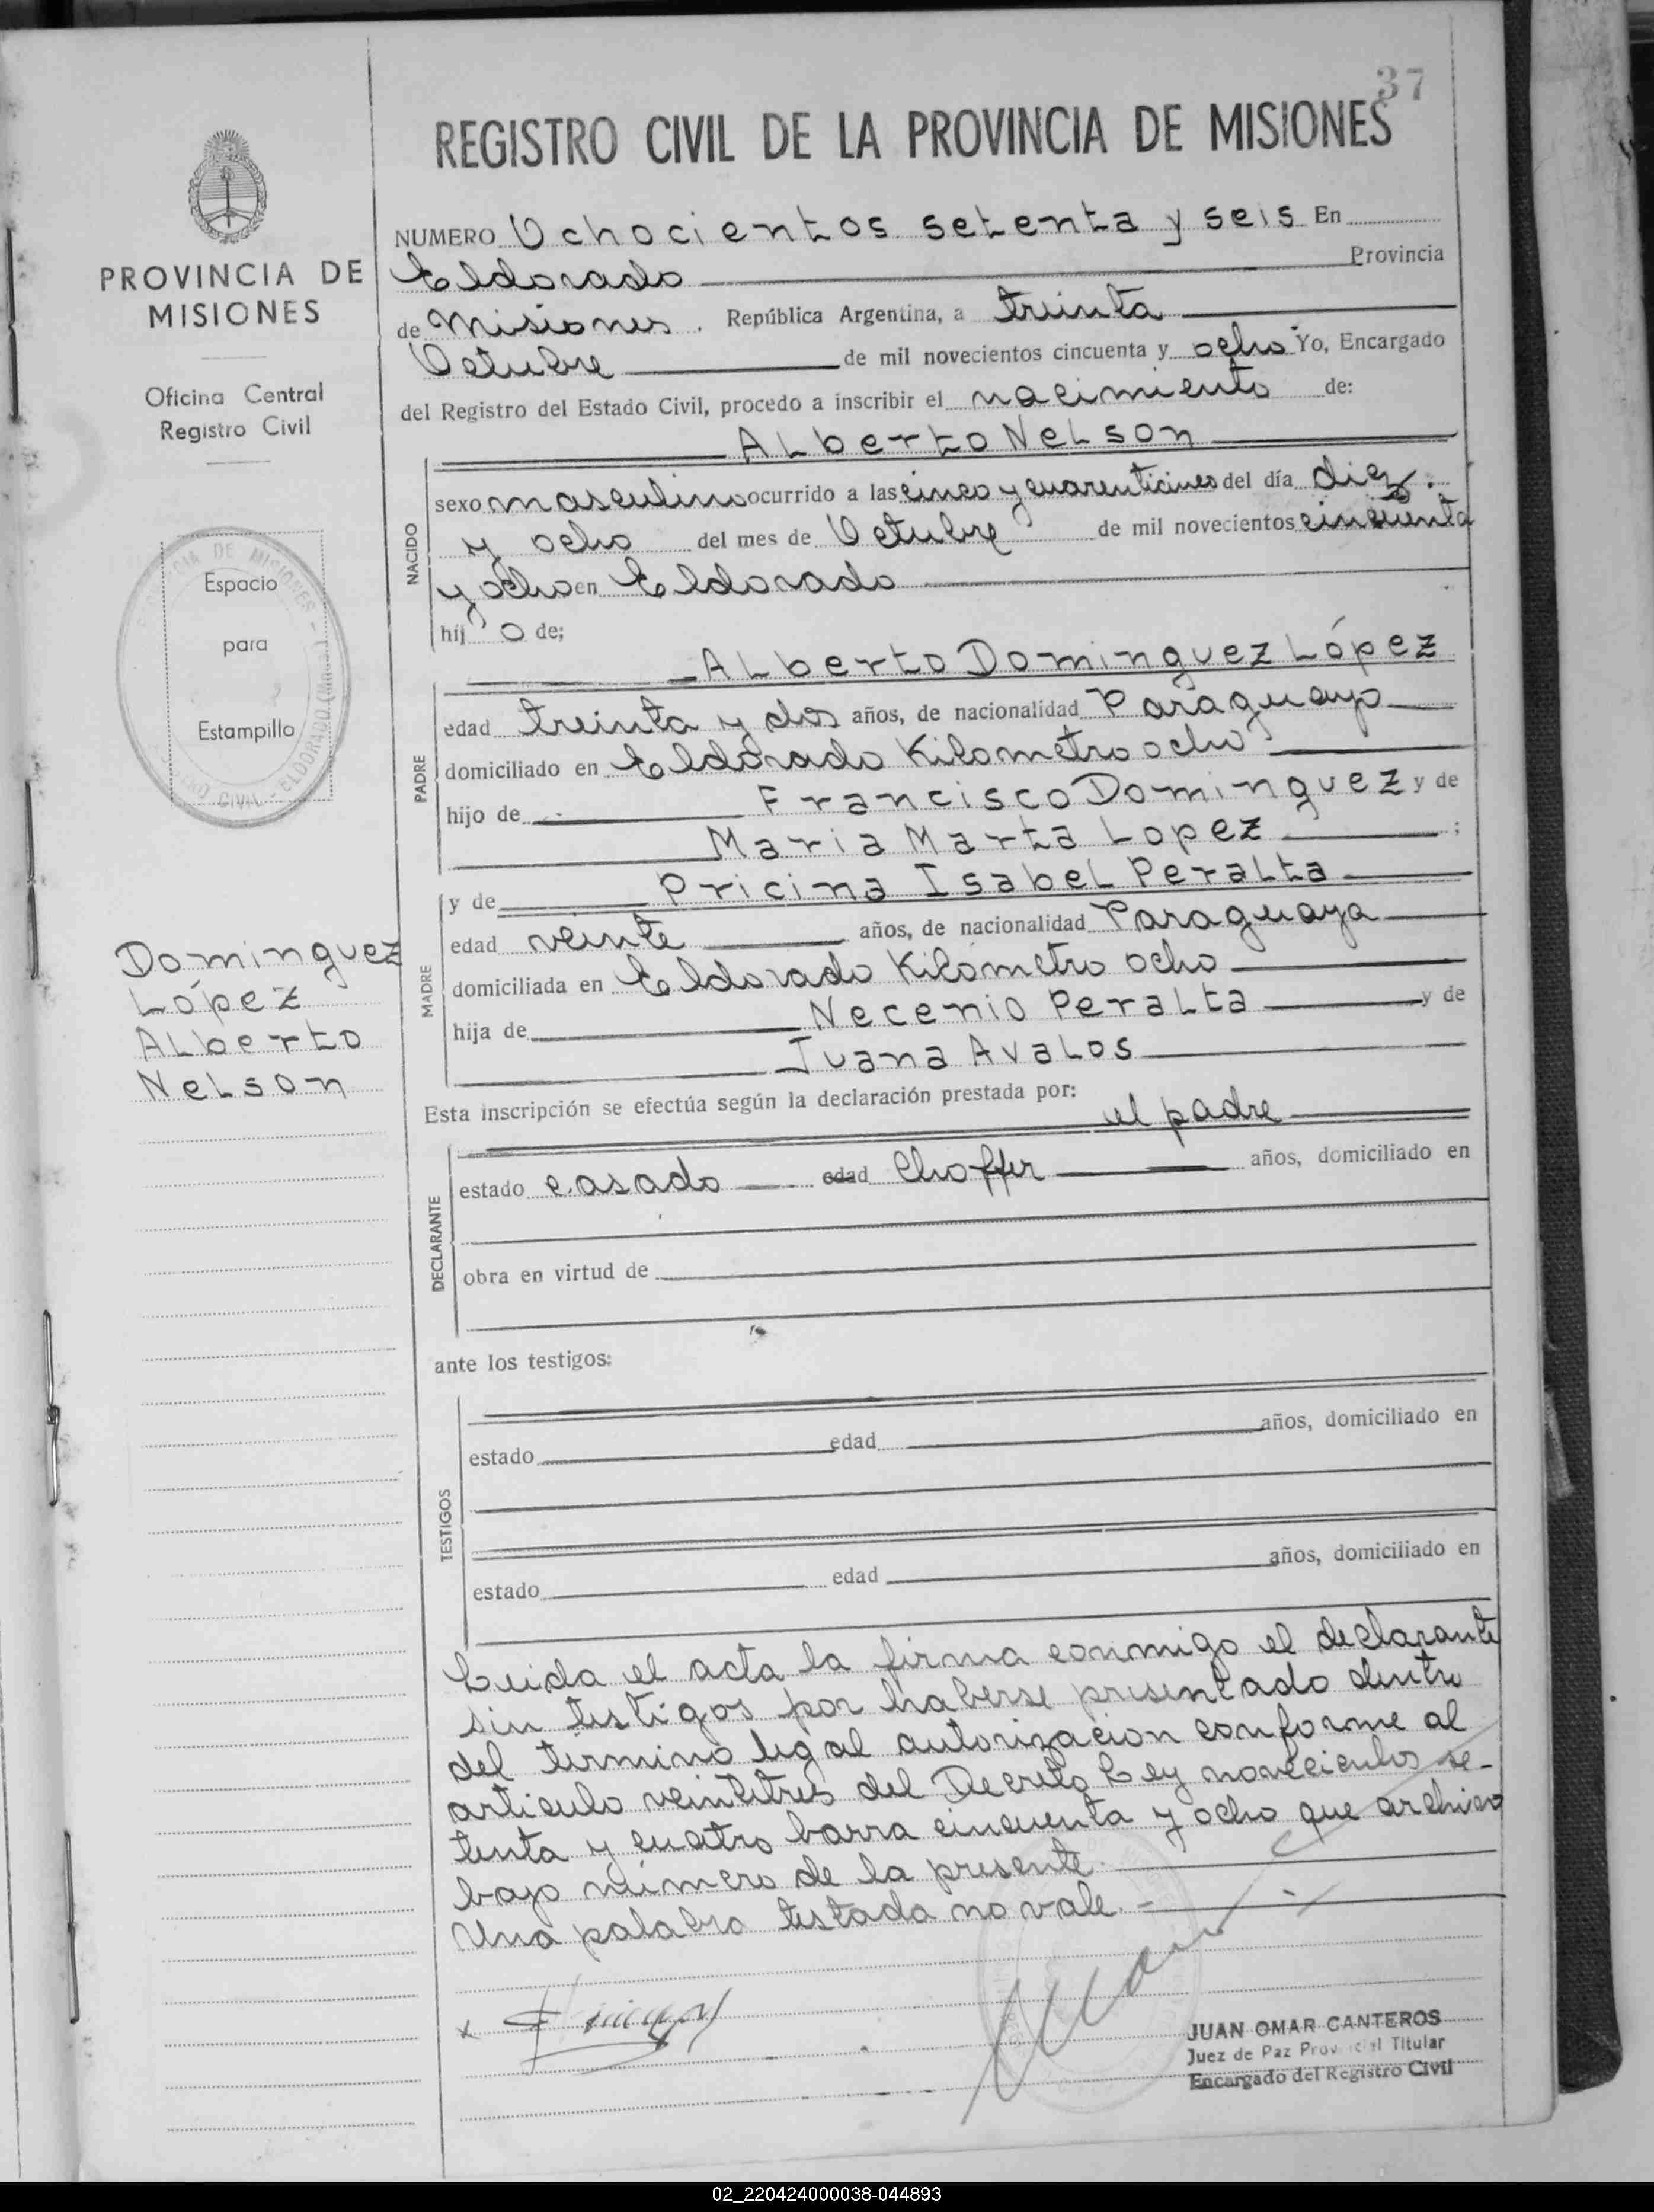 37
REGISTRO CIVIL DE LA PROVINCIA DE MISIONES
PROVINCIA DE
MISIONES
Oficina Central
Registro Civil
Espacio
para
Estampillo
Dominguez
López
Alberto
Nelson
NUMERO Ochocientos setenta y seis En
Eldorado Provincia
de Misiones. República Argentina, a treinta
Octubre de mil novecientos cincuenta y ocho Yo, Encargado
del Registro del Estado Civil, procedo a inscribir el nacimiento de:
Alberto Nelson
NACIDO
sexo masculino ocurrido a las cinco y cuarenticinco del día diez
y ocho del mes de Octubre de mil novecientos cincuenta
y ocho en Eldorado
hij o de;
PADRE
Alberto Dominguez López
edad treinta y dos años, de nacionalidad Paraguayo
domiciliado en Eldorado Kilometro ocho
hijo de Francisco Dominguez y de
Maria Marta Lopez ;
MADRE
y de Pricina Isabel Peralta
edad veinte años, de nacionalidad Paraguaya
domiciliada en Eldorado Kilometro ocho
hija de Necenio Peralta y de
Juana Avalos
Esta inscripción se efectúa según la declaración prestada por:
el padre
DECLARANTE
estado casado edad Choffer años, domiciliado en
obra en virtud de
ante los testigos:
TESTIGOS
estado edad años, domiciliado en
estado edad años, domiciliado en
Leida el acta la firma conmigo el declarante
sin testigos por haberse presentado dentro
del termino legal autorizacion conforme al
articulo veintitres del Decreto Ley novecientos se-
tenta y cuatro barra cincuenta y ocho que archivo
bajo número de la presente.
Una palabra testada no vale.-
JUAN OMAR CANTEROS
Juez de Paz Provincial Titular
Encargado del Registro Civil
02_220424000038-044893